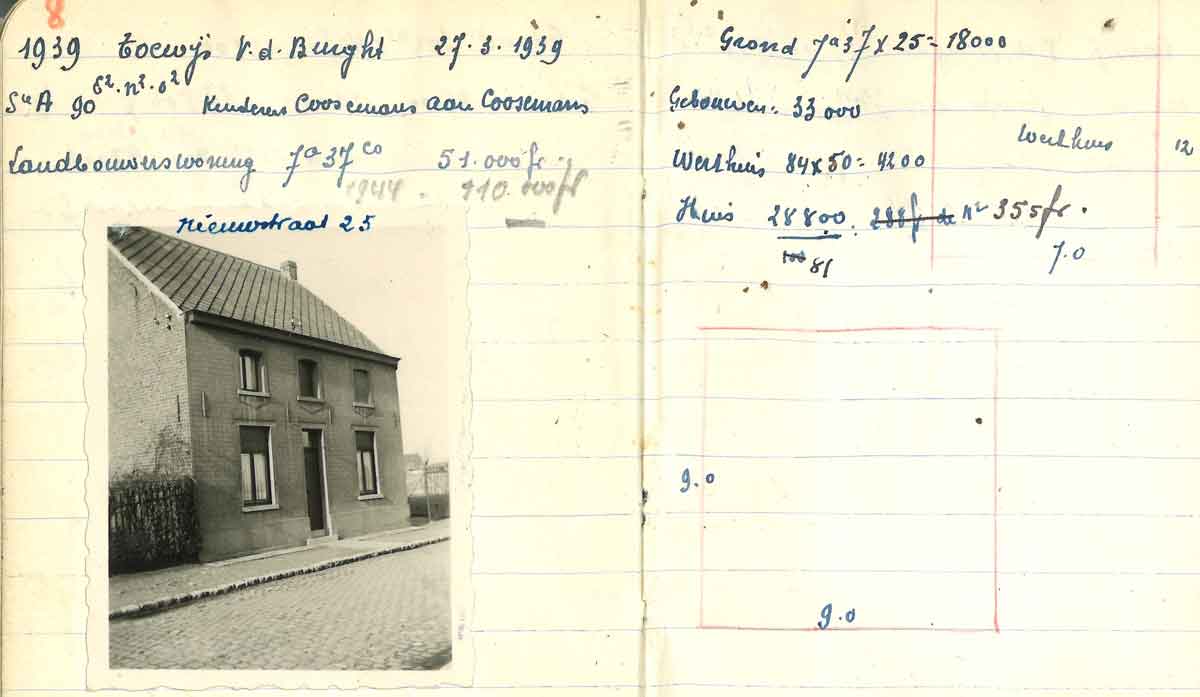 8
1939 Toewijs V.d. Burght 27.3.1939
Sie A 90 s2. n2. o2 Kinderen Coosemans aan Coosemans
Landbouwerswoning 7a 37 co 51.000 fr.
1944 - 110.000 fr
Nieuwstraat 25
Grond 7a37 x 25 = 18000
Gebouwen: 33000
Werkhuis 12
Werkhuis 84 x 50 = 4200
Huis 28800 : 288 fr de m2 355 fr.
100 81
7.0
9.0
9.0